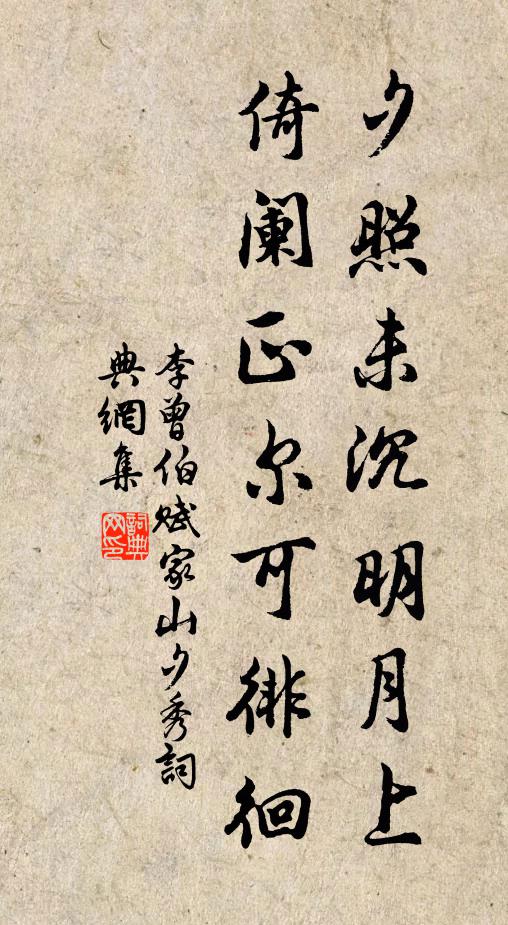 夕照未沉明月上
倚阑正尔可徘徊
李曾伯赋家山夕秀詞
典網集
詞典网印